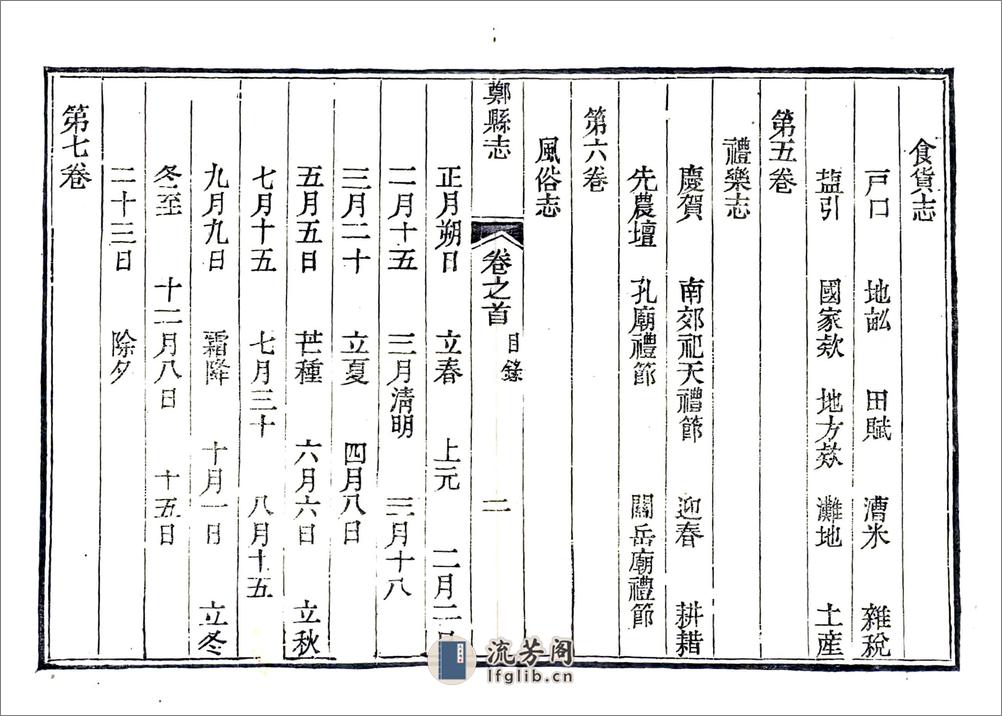 食貨志
戸口 地畝 田賦 漕米 雜稅
盐引 國家欵 地方欵 灘地 土産
第五卷
禮樂志
慶賀 南郊祀天禮節 迎春 耕耤
先農壇 孔廟禮節 關岳廟禮節
第六卷
風俗志
鄭縣志 卷之首 目錄 二
正月朔日 立春 上元 二月二日
二月十五 三月清明 三月十八
三月二十 立夏 四月八日
五月五日 芒種 六月六日 立秋
七月十五 七月三十 八月十五
九月九日 霜降 十月一日 立冬
冬至 十二月八日 十五日
二十三日 除夕
第七卷
流芳阁
lfglib.cn